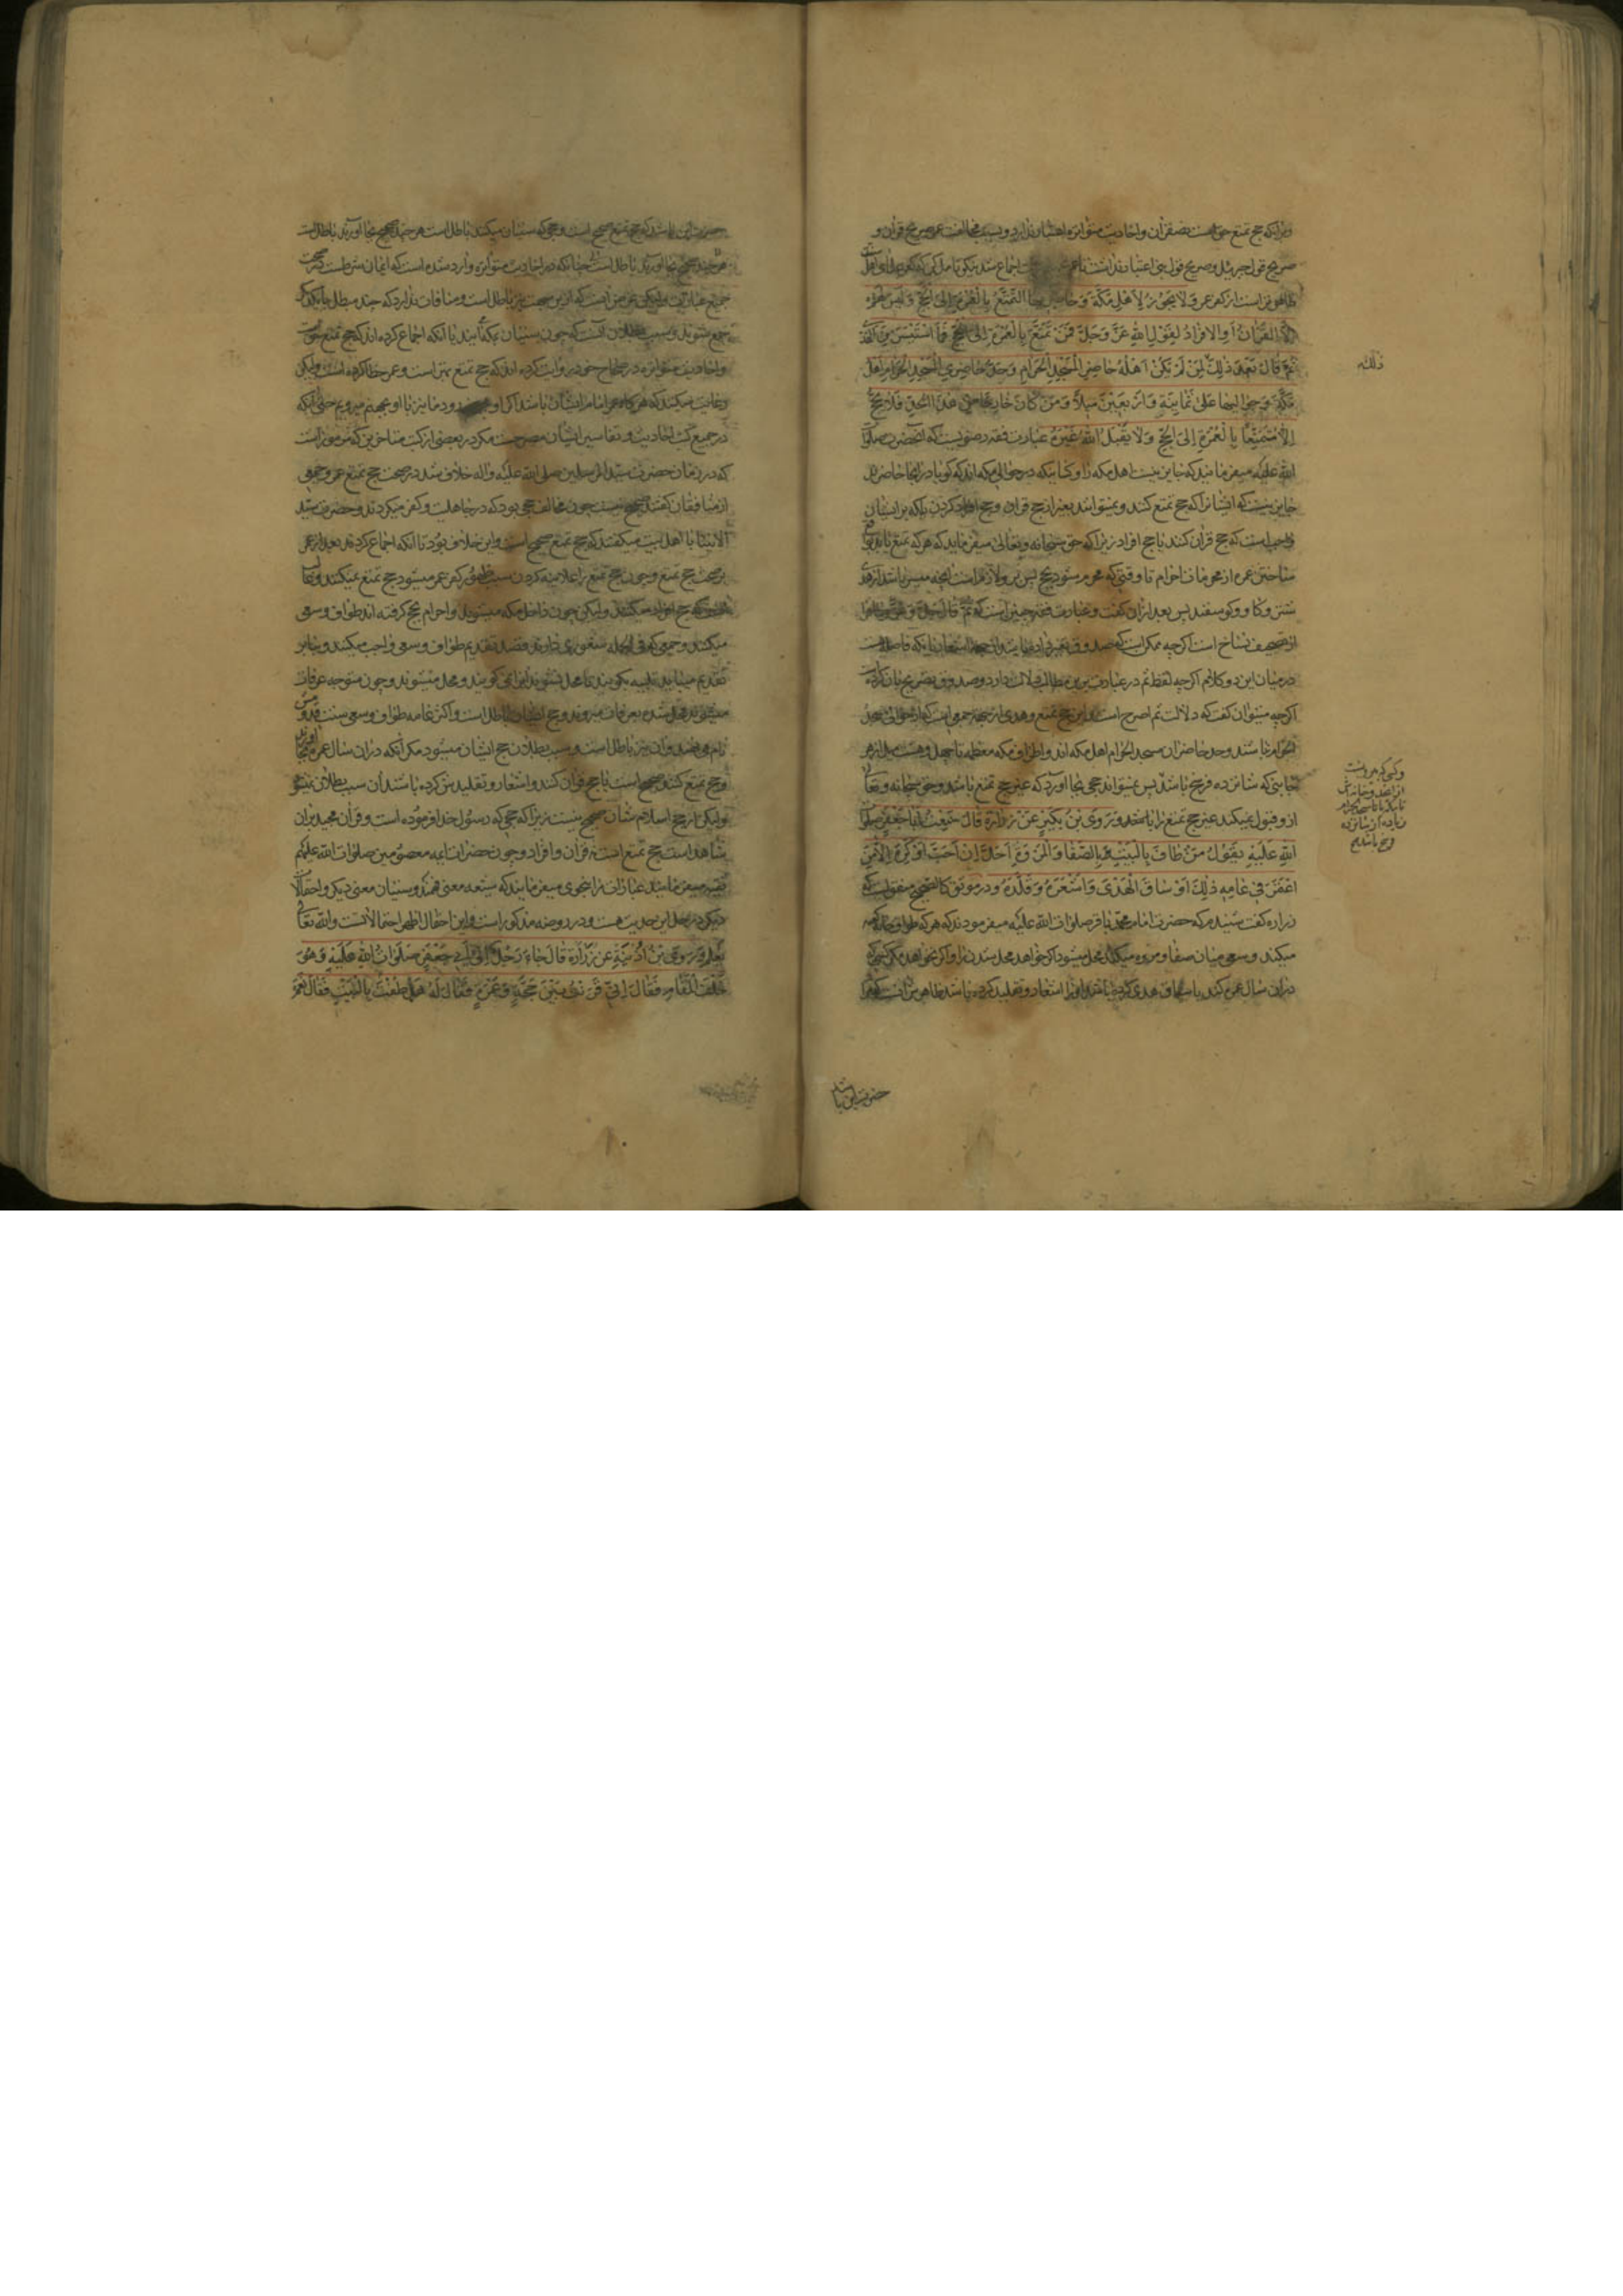 و بر آنکه حج تمتع حق است نص قرآن و احادیث متواتره اعتبار ندارد و بسبب مخالفت عمر صریح قرآن و
صریح قول جبرئیل و صریح قول نبی اعتبار نداشت تا عمر اجماع شد نیکو تأمل کن که کفر علمای اهل
ظاهرتر است از کفر عمر وَلا يَجُوزُ لِأَهْلِ مَكَّةَ وَحَاضِرِيهَا التَّمَتُّعُ بِالْعُمْرَةِ إِلَى الْحَجِّ وَلَيْسَ لَهُمْ
إِلَّا الْقِرَانُ أَوِ الْإِفْرَادُ لِقَوْلِ اللهِ عَزَّ وَجَلَّ فَمَنْ تَمَتَّعَ بِالْعُمْرَةِ إِلَى الْحَجِّ فَمَا اسْتَيْسَرَ مِنَ الْهَدْيِ
ثُمَّ قَالَ بَعْدَ ذَلِكَ لِمَنْ لَمْ يَكُنْ أَهْلُهُ حَاضِرِي الْمَسْجِدِ الْحَرَامِ وَحَدُّ حَاضِرِي الْمَسْجِدِ الْحَرَامِ أَهْلُ
مَكَّةَ وَحَوَالَيْهَا عَلَى ثَمَانِيَةٍ وَأَرْبَعِينَ مِيلاً وَمَنْ كَانَ خَارِجاً مِنْ هَذَا الْحَدِّ فَلَا يَحُجُّ
إِلَّا مُتَمَتِّعاً بِالْعُمْرَةِ إِلَى الْحَجِّ وَلَا يَقْبَلُ اللهُ غَيْرَهُ عبارت فقه رضویست که آنحضرت صلوات
الله علیه میفرمایند که جایز نیست اهل مکه را و کسانیکه در حوالی مکه اند که گویا در آنجا حاضرند
جایز نیست که ایشانرا که حج تمتع کنند و نمیتوانند بغیر از حج قران و حج افراد کردن بلکه بر ایشان
واجب است که حج قران کنند یا حج افراد زیرا که حق سبحانه و تعالی میفرماید که هر که تمتع یابد
ساختن عمره از محرمات احرام تا وقتی که محرم شود بحج پس برو لازم است آنچه میسر باشد از هدی
شتر و گاو و گوسفند پس بعد از آن گفت و عبارت فقه چنین است که ثم قال عز و جل
از تصحیف نساخ است اگرچه ممکن است که صدوق تغییر داده باشد
در میان این دو کلام اگرچه لفظ ثم در عبارت برین مطالب دلالت دارد و صدوق تصریح بآن کرده
اگرچه میتوان گفت که دلالت ثم اصرح است و این حج تمتع و هدی از جهة جمعی است که از حوالی مسجد
الحرام نباشند و حد حاضران مسجد الحرام اهل مکه اند و اطراف مکه معظمه تا چهل و هشت میل از هر
جانبی که شانزده فرسخ باشد پس نمیتواند حجی بجا آورد که غیر حج تمتع باشد و حق سبحانه و تعالی
ازو قبول نمیکند غیر حج تمتع را وَرَوَى بْنُ بُكَيْرٍ عَنْ زُرَارَةَ قَالَ سَمِعْتُ أَبَا جَعْفَرٍ صلوات
اللهِ عَلَيْهِ يَقُولُ مَنْ طَافَ بِالْبَيْتِ وَبِالصَّفَا وَالْمَرْوَةِ أَحَلَّ إِنْ أَحَبَّ أَوْ كَرِهَ إِلَّا مَنِ
اعْتَمَرَ فِي عَامِهِ ذَلِكَ أَوْ سَاقَ الْهَدْيَ وَأَشْعَرَهُ وَقَلَّدَهُ و در موثق کالصحیح منقولست که
زراره گفت شنیدم که حضرت امام محمد باقر صلوات الله علیه میفرمودند که هر که طواف خانه کعبه
میکند و سعی میان صفا و مروه میکند محل میشود اگر خواهد محل شدن را و اگر نخواهد مگر کسی که
در آن سال عمره کند یا سیاق هدی کرده باشد و آنرا اشعار و تقلید کرده باشد ظاهر
ذلک
و کسی که بیرونست
ازین حد و خانه اش
تا مکه یا تا مسجد الحرام
زیاده از شانزده
فرسخ باشد
حضرت این باشد
حضرت این باشد که حج تمتع صحیح است و حجی که سنیان میکنند باطل است هر چند صحیح بجا آورند باطل است
جمیع عبادات و لیکن غرض است که ازین جهت نیز باطل است و منافات ندارد که چند مبطل با یکدیگر
جمع شوند و سبب بطلان آنست که چون سنیان بمکه آیند با آنکه اجماع کرده اند که حج تمتع خوبست
و احادیث متواتره در صحاح خود روایت کرده اند که حج تمتع بهتر است و عمر خطا کرده است و لیکن
رعایت میکنند که هر گاه عمر امام ایشان باشد اگر او بجهنم رود ما نیز با او بجهنم میرویم حتی آنکه
در جمیع کتب احادیث و تفاسیر ایشان مصرحست مگر در بعضی از کتب متأخرین که مرموز است
که در زمان حضرت سید المرسلین صلی الله علیه و اله خلاف شد در صحت حج تمتع عمر و جمعی
از منافقان گفتند صحیح نیست چون مخالف حجی بود که در جاهلیت و کفر میکردند و حضرت سید
الانبیا با اهل بیت میگفتند که حج تمتع صحیح است و این خلاف بود تا آنکه اجماع کردند بعد از عمر
بر صحت حج تمتع و چون حج تمتع را علانیه کردن سبب ظهور کفر عمر میشود حج تمتع نمیکنند و
حج افراد میکنند و لیکن چون داخل مکه میشوند و احرام بحج گرفته اند طواف و سعی
میکنند و جمعی که فی الجمله شعوری دارند قصد تقدیم طواف و سعی واجب میکنند و بنابر
تقدیم میباید تلبیه بگویند تا محل نشوند نمیگویند و محل میشوند و چون متوجه عرفات
میشوند محل شده بعرفات میروند و حج ایشان باطل است و اکثر عامه طواف و سعی سنت قدوم
نام می نهند و آن نیز باطل است و سبب بطلان حج ایشان میشود مگر آنکه در آن سال عمره بجا
و حج تمتع کنند صحیح است یا حج قران کنند و اشعار و تقلید نیز کرده باشند آن سبب بطلان نمیشود
و لیکن از حج اسلام شان صحیح نیست زیرا که حجی که رسول خدا فرموده است و قرآن مجید بر آن
شاهد است حج تمتع است نه قران و افراد و چون حضرات ائمه معصومین صلوات الله علیهم
تقیه میفرمایند عبارات را بنحوی میفرمایند که شیعه معنی فهمند و سنیان معنی دیگر و احتمالات
دیگر در حل این حدیث هست و در روضه مذکور است و این احتمال اظهر احتمالاتست و الله تعالی
یعلم وَرَوَى بْنُ أُذَيْنَةَ عَنْ زُرَارَةَ قَالَ جَاءَ رَجُلٌ إِلَى أَبِي جَعْفَرٍ صَلَوَاتُ اللهِ عَلَيْهِ وَهُوَ
خَلْفَ الْمَقَامِ فَقَالَ إِنِّي قَرَنْتُ بَيْنَ حَجَّةٍ وَعُمْرَةٍ فَقَالَ لَهُ هَلْ طُفْتَ بِالْبَيْتِ فَقَالَ نَعَمْ